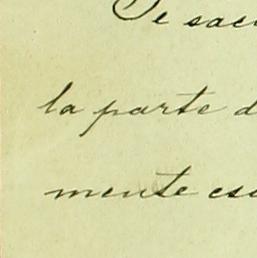 Se sac
la parte d
mente es